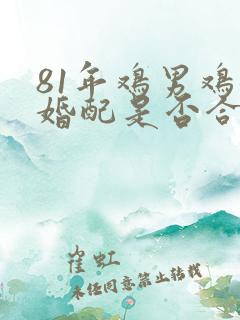 81年鸡男鸡
婚配是否合
崔虹
未经同意禁止转载